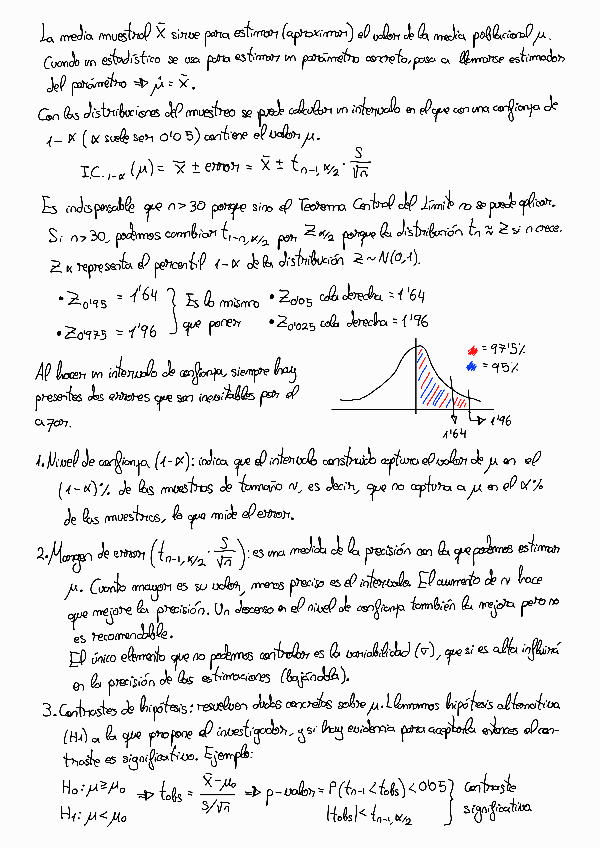 La media muestral X̄ sirve para estimar (aproximar) el valor de la media poblacional μ.
Cuando un estadístico se usa para estimar un parámetro concreto, pasa a llamarse estimador
del parámetro ⇒ μ̂ = X̄.
Con las distribuciones del muestreo se puede calcular un intervalo en el que con una confianza de
1-α (α suele ser 0'05) contiene el valor μ.
I.C.₁₋α (μ) = X̄ ± error = X̄ ± t n-1, α/2 · S/√n
Es indispensable que n>30 porque sino el Teorema Central del Límite no se puede aplicar.
Si n>30, podemos cambiar t 1-n, α/2 por Z α/2 porque la distribución tn ≈ Z si n crece.
Z α representa el percentil 1-α de la distribución Z~N(0,1).
• Z 0'95 = 1'64 } Es lo mismo • Z 0'05 cola derecha = 1'64
• Z 0'975 = 1'96 } que poner • Z 0'025 cola derecha = 1'96
= 97'5%
= 95%
1'96
1'64
Al hacer un intervalo de confianza, siempre hay
presentes dos errores que son inevitables por el
azar.
1. Nivel de confianza (1-α): indica que el intervalo construido captura el valor de μ en el
(1-α)% de las muestras de tamaño n, es decir, que no captura a μ en el α%
de las muestras, lo que mide el error.
2. Margen de error (t n-1, α/2 · S/√n): es una medida de la precisión con la que podemos estimar
μ. Cuanto mayor es su valor, menos preciso es el intervalo. El aumento de n hace
que mejore la precisión. Un descenso en el nivel de confianza también la mejora pero no
es recomendable.
El único elemento que no podemos controlar es la variabilidad (σ), que si es alta influirá
en la precisión de las estimaciones (bajándola).
3. Contrastes de hipótesis: resuelven dudas concretas sobre μ. Llamamos hipótesis alternativa
(H1) a la que propone el investigador, y si hay evidencia para aceptarla entonces el con-
traste es significativo. Ejemplo:
H0: μ ≥ μ0 ⇒ tobs = X̄-μ0 / S/√n ⇒ p-valor = P(t n-1 < tobs) < 0'05 } contraste
H1: μ < μ0 |tobs| < t n-1, α/2 } significativo